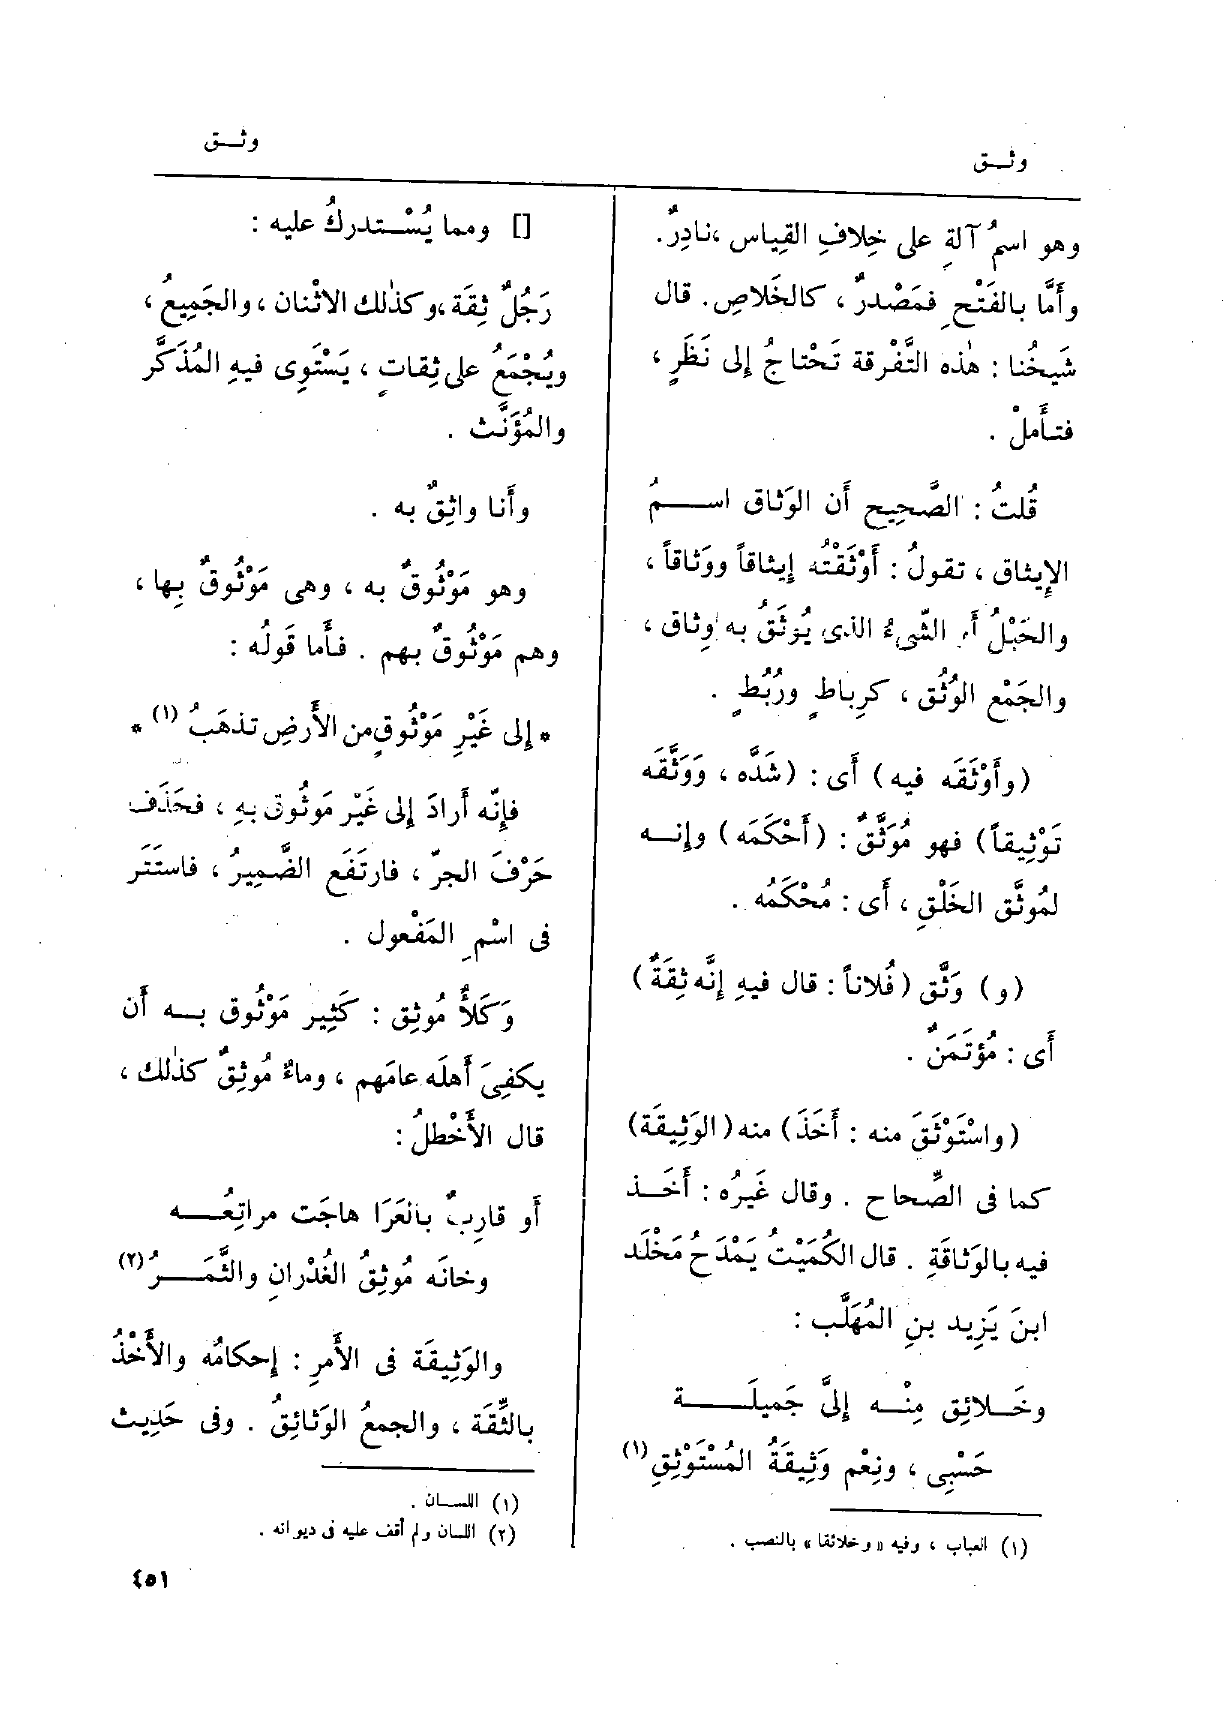 وثـق
وثـق
وهو اسمُ آلةِ على خِلافِ القِياس ،نادِرٌ.
وأَمَّا بالفَتْحِ فمَصْدرٌ ، كالخَلاصِ. قال
شَيخُنا : هٰذه التَّفْرقة تَحْتاجُ إلى نَظَرٍ ،
فتـأَملْ .
قُلتُ : الصَّحِيح أَن الوَثاق اســمُ
الإِيثاق ، تقولُ : أَوْثَقْتُه إِيثاقاً ووَثاقاً ،
والحَبْلُ أَو الشَّىءُ الذى يُوثَقُ به وِثاق ،
والجَمْع الوُثُق ، كرِباطٍ ورُبُطٍ .
(وأَوْثَقَه فيه) أَى : (شَدَّه ، وَوَثَّقَه
تَوْثِيقاً) فهو مُوَثَّقٌ : (أَحْكَمَه) وإِنــه
لمُوثَّق الخَلْقِ ، أَى : مُحْكَمُه .
(و) وَثَّق (فُلاناً : قال فيهِ إِنَّه ثِقَةٌ)
أَى : مُؤتَمَنٌ .
(واسْتَوْثَقَ منه : أَخَذَ) منه (الوَثِيقَة)
كما فى الصِّحاح . وقال غَيرُه : أَخَــذ
فيه بالوَثاقَةِ . قال الكُمَيْتُ يَمْدَحُ مَخْلَد
ابنَ يَزِيد بنِ المُهَلَّب :
وخَــلائِق مِنْــه إِلىَّ جَميلَــــة
حَسْبِى ، ونِعْم وَثِيقَةُ المُسْتَوْثِقِ (١)
(١) العباب ، وفيه «وخلائقا» بالنصب .
[] ومما يُسْـتدركُ عليه :
رَجُلٌ ثِقَة،وكذٰلك الاثْنان ، والجَمِيعُ ،
ويُجْمَعُ على ثِقاتٍ ، يَسْتَوِى فيهِ المُذَكَّر
والمُؤَنَّث .
وأَنا واثِقٌ به .
وهو مَوْثُوقٌ به ، وهى مَوْثُوقٌ بِها ،
وهم مَوْثُوقٌ بهم . فـأَما قَولُه :
* إلى غَيْرِ مَوْثُوقٍ من الأَرضِ تذهَبُ (١) *
فإِنّه أَرادَ إلى غَيْر مَوثُوق بهِ ، فحَذَف
حَرْفَ الجرّ ، فارتَفَع الضَّميرُ ، فاستَتَر
فى اسْمِ المَفْعول .
وَكَلأٌ مُوثِق : كَثِير مَوْثُوق بــه أَن
يكفِىَ أَهلَه عامَهم ، وماءٌ مُوثِقٌ كذٰلك ،
قال الأَخْطلُ :
أَو قارِبٌ بالعَرَا هاجَت مراتِعُـــه
وخانَه مُوثِقُ الغُدْرانِ والثَّمَـــرُ (٢)
والوَثِيقَة فى الأَمرِ : إِحكامُه والأَخْذُ
بالثِّقَة ، والجمعُ الوَثائِقُ . وفى حَدِيث
(١) اللسان .
(٢) اللسان ولم أقف عليه فى ديوانه .
٤٥١